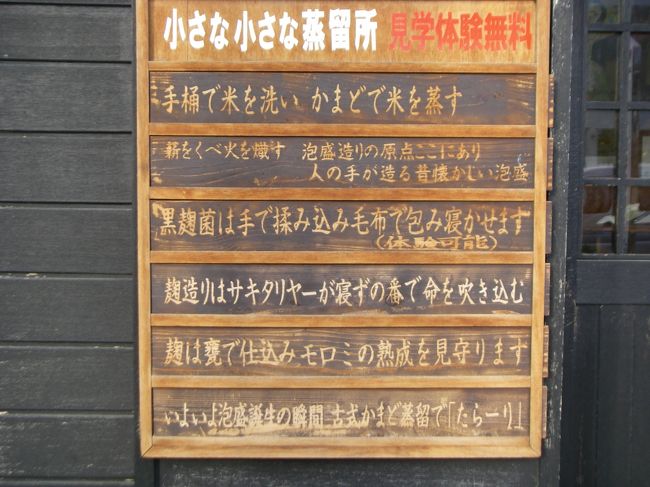 小さな小さな蒸留所 見学体験無料
手桶で米を洗い かまどで米を蒸す
薪をくべ火を熾す 泡盛造りの原点ここにあり
人の手が造る昔懐かしい泡盛
黒麹菌は手で揉み込み毛布で包み寝かせます
(体験可能)
麹造りはサキタリヤーが寝ずの番で命を吹き込む
麹は甕で仕込みモロミの熟成を見守ります
いよいよ泡盛誕生の瞬間 古式かまど蒸留で「たらーり」